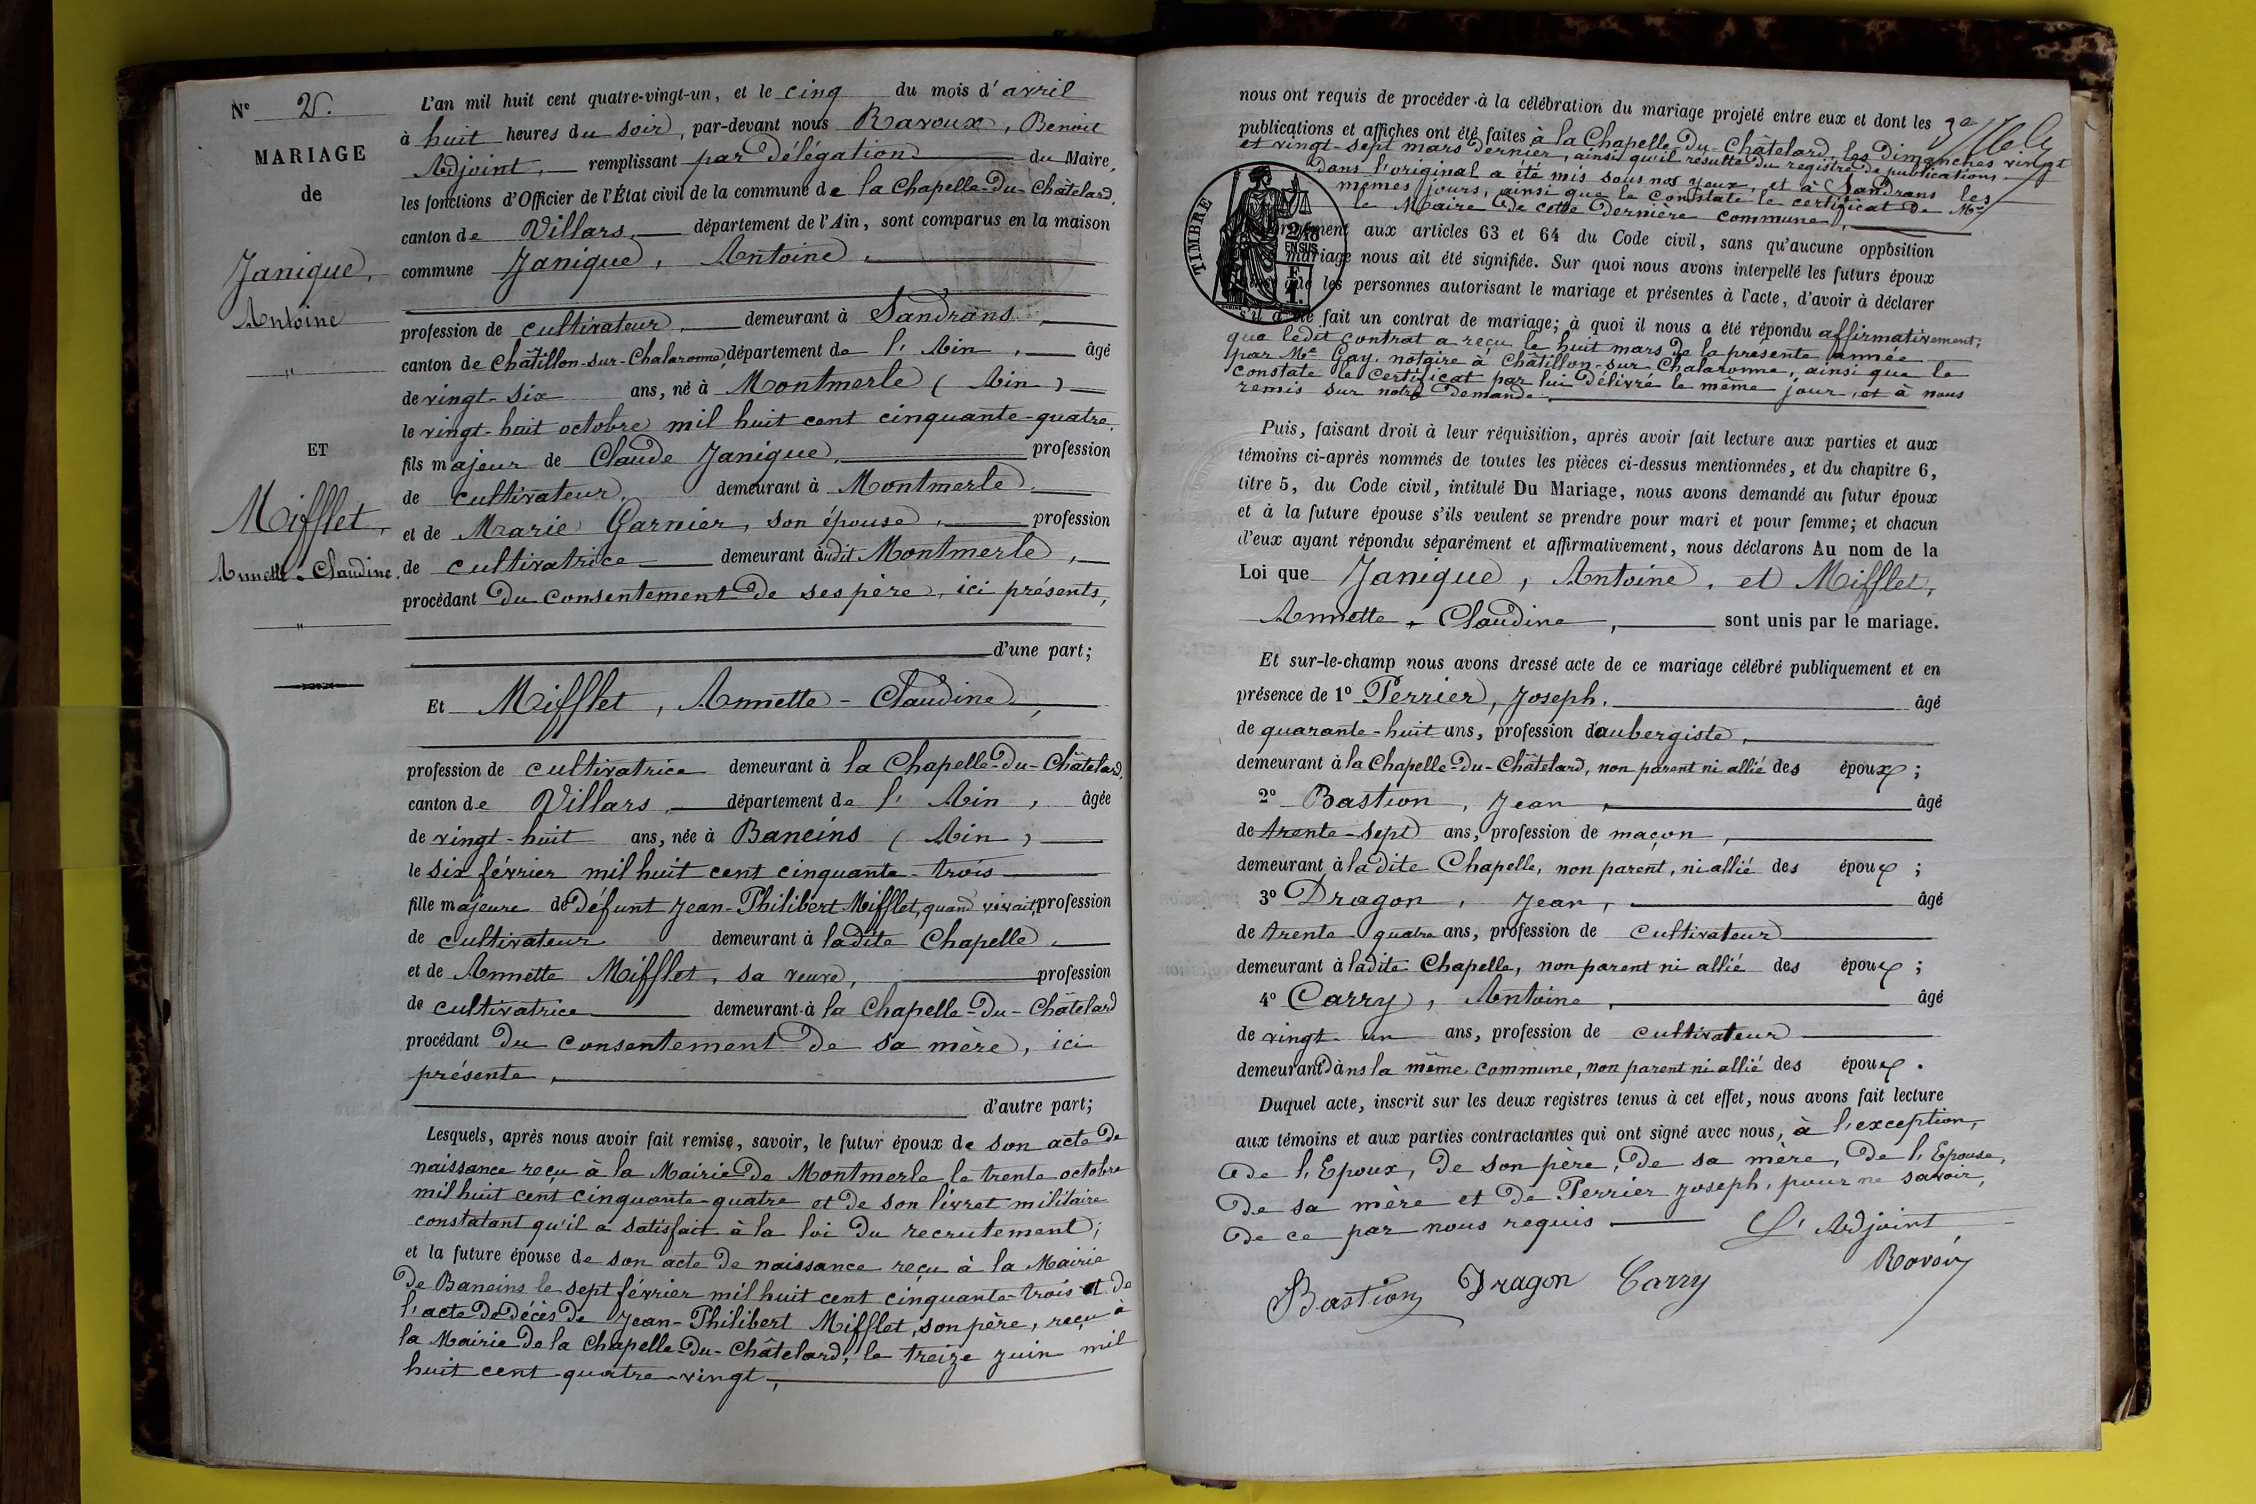 N° 2.
MARIAGE
de
Janique,
Antoine
"
ET
Mifflet,
Annette-Claudine.
"
L'an mil huit cent quatre-vingt-un, et le cinq du mois d'avril
à huit heures du soir, par-devant nous Ravoux, Benoit
Adjoint, remplissant par délégation du Maire,
les fonctions d'Officier de l'État civil de la commune de la Chapelle-du-Châtelard,
canton de Villars, département de l'Ain, sont comparus en la maison
commune Janique, Antoine,
profession de cultivateur, demeurant à Sandrans,
canton de Châtillon-sur-Chalaronne, département de l'Ain, âgé
de vingt-six ans, né à Montmerle (Ain)
le vingt-huit octobre mil huit cent cinquante-quatre,
fils majeur de Claude Janique, profession
de cultivateur, demeurant à Montmerle,
et de Marie Garnier, son épouse, profession
de cultivatrice demeurant audit Montmerle,
procédant du consentement de ses père, ici présents,
d'une part;
Et Mifflet, Annette-Claudine,
profession de cultivatrice demeurant à la Chapelle-du-Châtelard,
canton de Villars, département de l'Ain, âgée
de vingt-huit ans, née à Baneins (Ain)
le six février mil huit cent cinquante-trois
fille majeure de défunt Jean-Philibert Mifflet, quand vivait, profession
de cultivateur demeurant à ladite Chapelle,
et de Annette Mifflet, sa veuve, profession
de cultivatrice demeurant à la Chapelle-du-Châtelard
procédant du consentement de sa mère, ici
présente,
d'autre part;
Lesquels, après nous avoir fait remise, savoir, le futur époux de son acte de
naissance reçu à la Mairie de Montmerle le trente octobre
mil huit cent cinquante-quatre et de son livret militaire
constatant qu'il a satisfait à la loi du recrutement;
et la future épouse de son acte de naissance reçu à la Mairie
de Baneins le sept février mil huit cent cinquante-trois et de
l'acte de décès de Jean-Philibert Mifflet, son père, reçu à
la Mairie de la Chapelle-du-Châtelard, le treize juin mil
huit cent quatre-vingt,
nous ont requis de procéder à la célébration du mariage projeté entre eux et dont les
publications et affiches ont été faites à la Chapelle-du-Châtelard, les Dimanches vingt
et vingt-sept mars dernier, ainsi qu'il résulte du registre de publications
dans l'original a été mis sous nos yeux, et à Sandrans les
mêmes jours, ainsi que le constate le certificat de Mr
le Maire de cette dernière commune,
TIMBRE
2/10
EN SUS
F
1.
aux articles 63 et 64 du Code civil, sans qu'aucune opposition
mariage nous ait été signifiée. Sur quoi nous avons interpellé les futurs époux
que les personnes autorisant le mariage et présentes à l'acte, d'avoir à déclarer
s'il a été fait un contrat de mariage; à quoi il nous a été répondu affirmativement;
que ledit contrat a reçu le huit mars de la présente année
par Me Gay, notaire à Châtillon-sur-Chalaronne, ainsi que le
constate le certificat par lui délivré le même jour, et à nous
remis sur notre demande.
Puis, faisant droit à leur réquisition, après avoir fait lecture aux parties et aux
témoins ci-après nommés de toutes les pièces ci-dessus mentionnées, et du chapitre 6,
titre 5, du Code civil, intitulé Du Mariage, nous avons demandé au futur époux
et à la future épouse s'ils veulent se prendre pour mari et pour femme; et chacun
d'eux ayant répondu séparément et affirmativement, nous déclarons Au nom de la
Loi que Janique, Antoine, et Mifflet,
Annette-Claudine, sont unis par le mariage.
Et sur-le-champ nous avons dressé acte de ce mariage célébré publiquement et en
présence de 1° Perrier, Joseph, âgé
de quarante-huit ans, profession d'aubergiste,
demeurant à la Chapelle-du-Châtelard, non parent ni allié des époux;
2° Bastion, Jean, âgé
de trente-sept ans, profession de maçon,
demeurant à ladite Chapelle, non parent, ni allié des époux;
3° Dragon, Jean, âgé
de trente-quatre ans, profession de cultivateur
demeurant à ladite Chapelle, non parent ni allié des époux;
4° Carry, Antoine, âgé
de vingt-un ans, profession de cultivateur
demeurant dans la même commune, non parent ni allié des époux.
Duquel acte, inscrit sur les deux registres tenus à cet effet, nous avons fait lecture
aux témoins et aux parties contractantes qui ont signé avec nous, à l'exception,
de l'Epoux, de son père, de sa mère, de l'Epouse,
de sa mère et de Perrier Joseph, pour ne savoir,
de ce par nous requis L'Adjoint
Bastion Dragon Carry